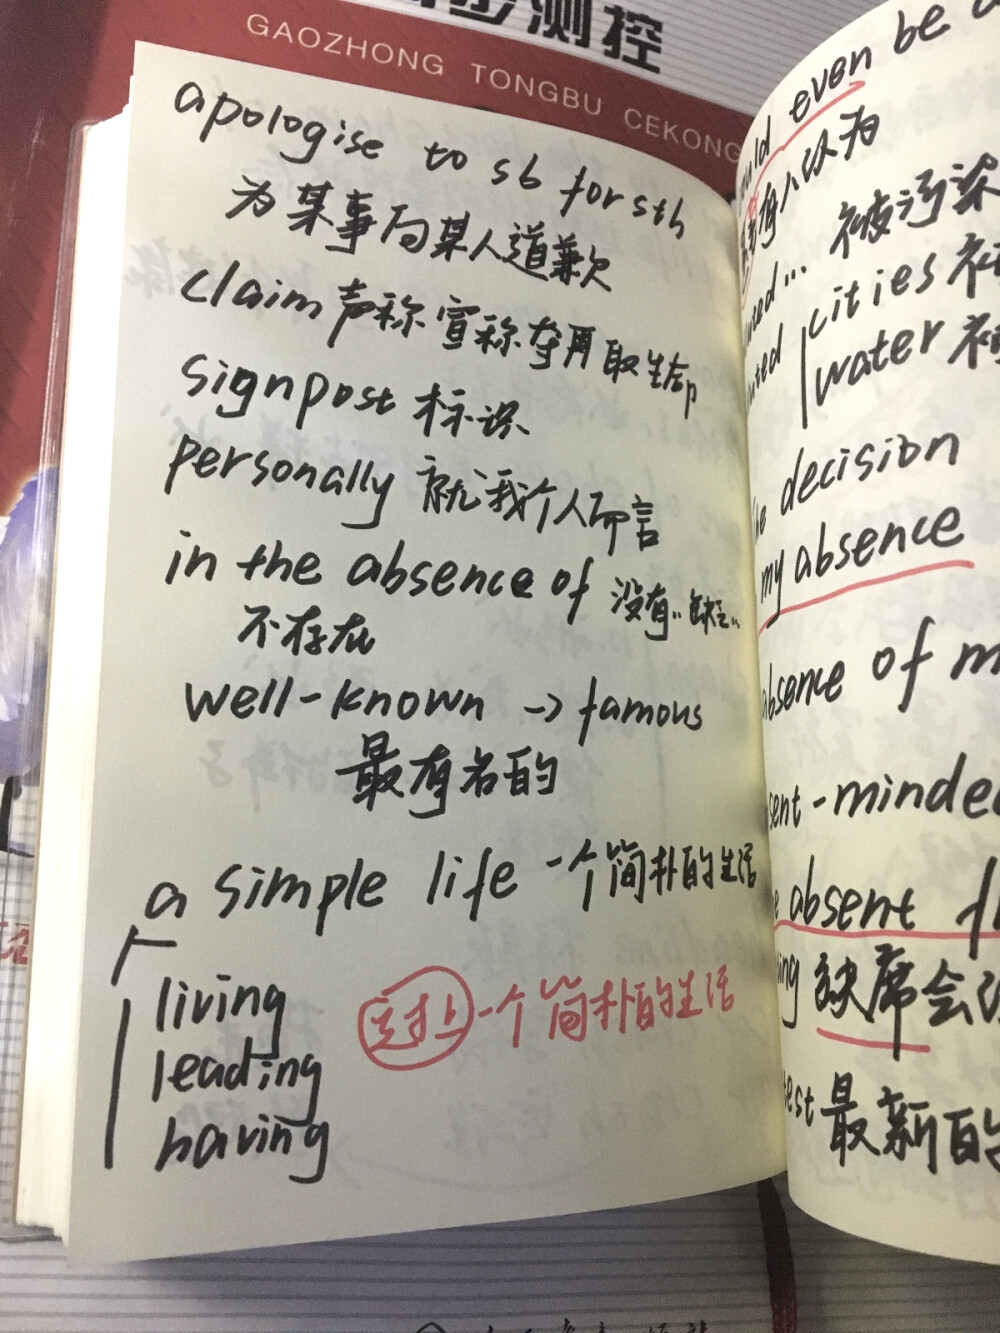 测控
GAOZHONG TONGBU CEKONG
apologise to sb for sth
为某事向某人道歉
claim 声称 宣称 夺取生命
signpost 标识
personally 就我个人而言
in the absence of 没有..缺乏..
不存在
well-known -> famous
最有名的
a simple life 一个简朴的生活
living
leading
having
过上一个简朴的生活
even be
有人以为
... 被污染
cities 被
water 被
decision
my absence
absence of m
sent-minded
absent f
缺席会议
最新的